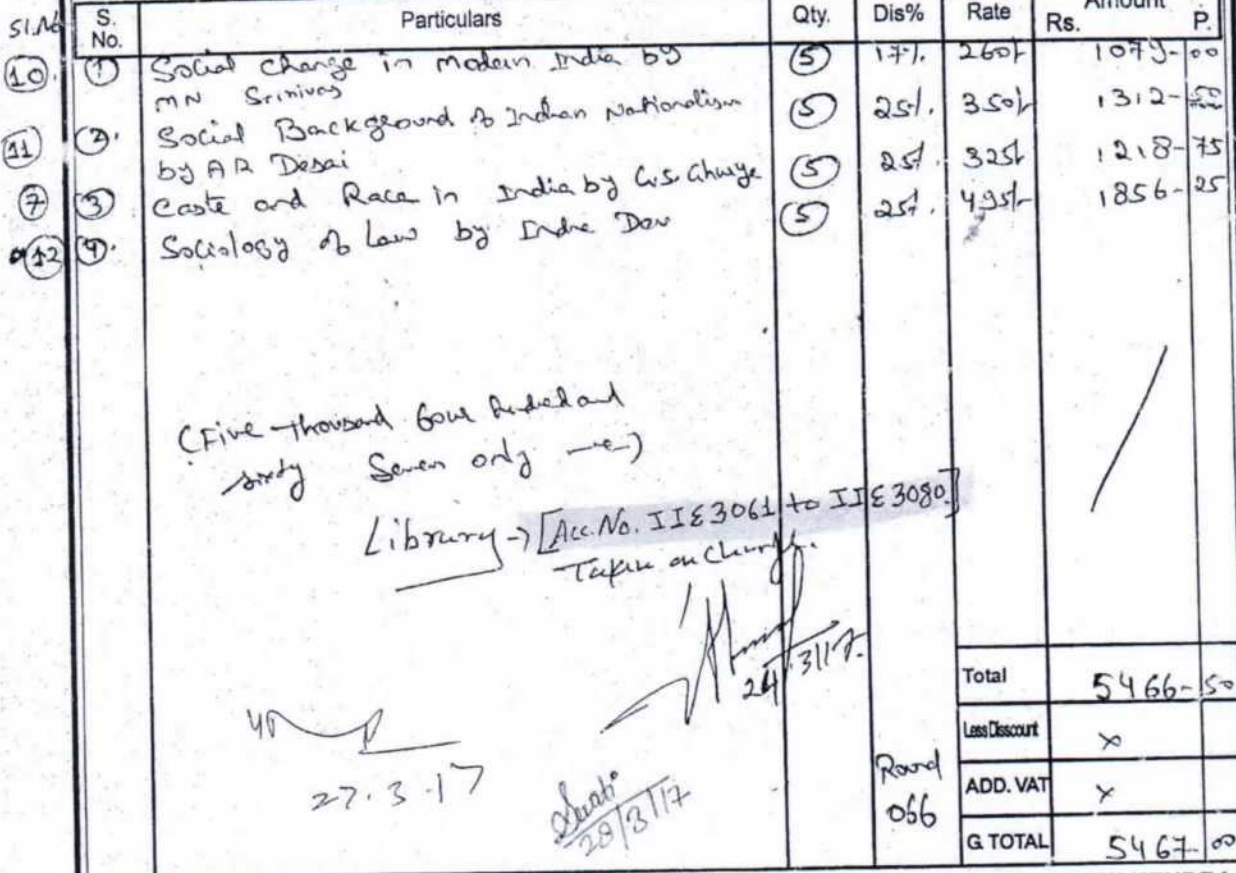 Sl.No S. No. Particulars Qty. Dis% Rate Amount Rs. P.
10. 1 Social Change in Modern India by 5 17%. 260/- 1079-00
MN Srinivas
11 2. Social Background of Indian Nationalism 5 25%. 350/- 1312-50
by AR Desai
7 3 Caste and Race in India by G.S. Ghurye 5 25%. 325/- 1218-75
12 4. Sociology of Law by Indra Dev 5 25%. 495/- 1856-25
(Five Thousand Four Hundred and
sixty Seven only)
Library → [Acc.No. IIE3061 to IIE3080.]
Taken on Charge.
24/3/17.
27.3.17
Swati
28/3/17
Total 5466-50
Less Disscount x
Round off
ADD. VAT x
G TOTAL 5467-00